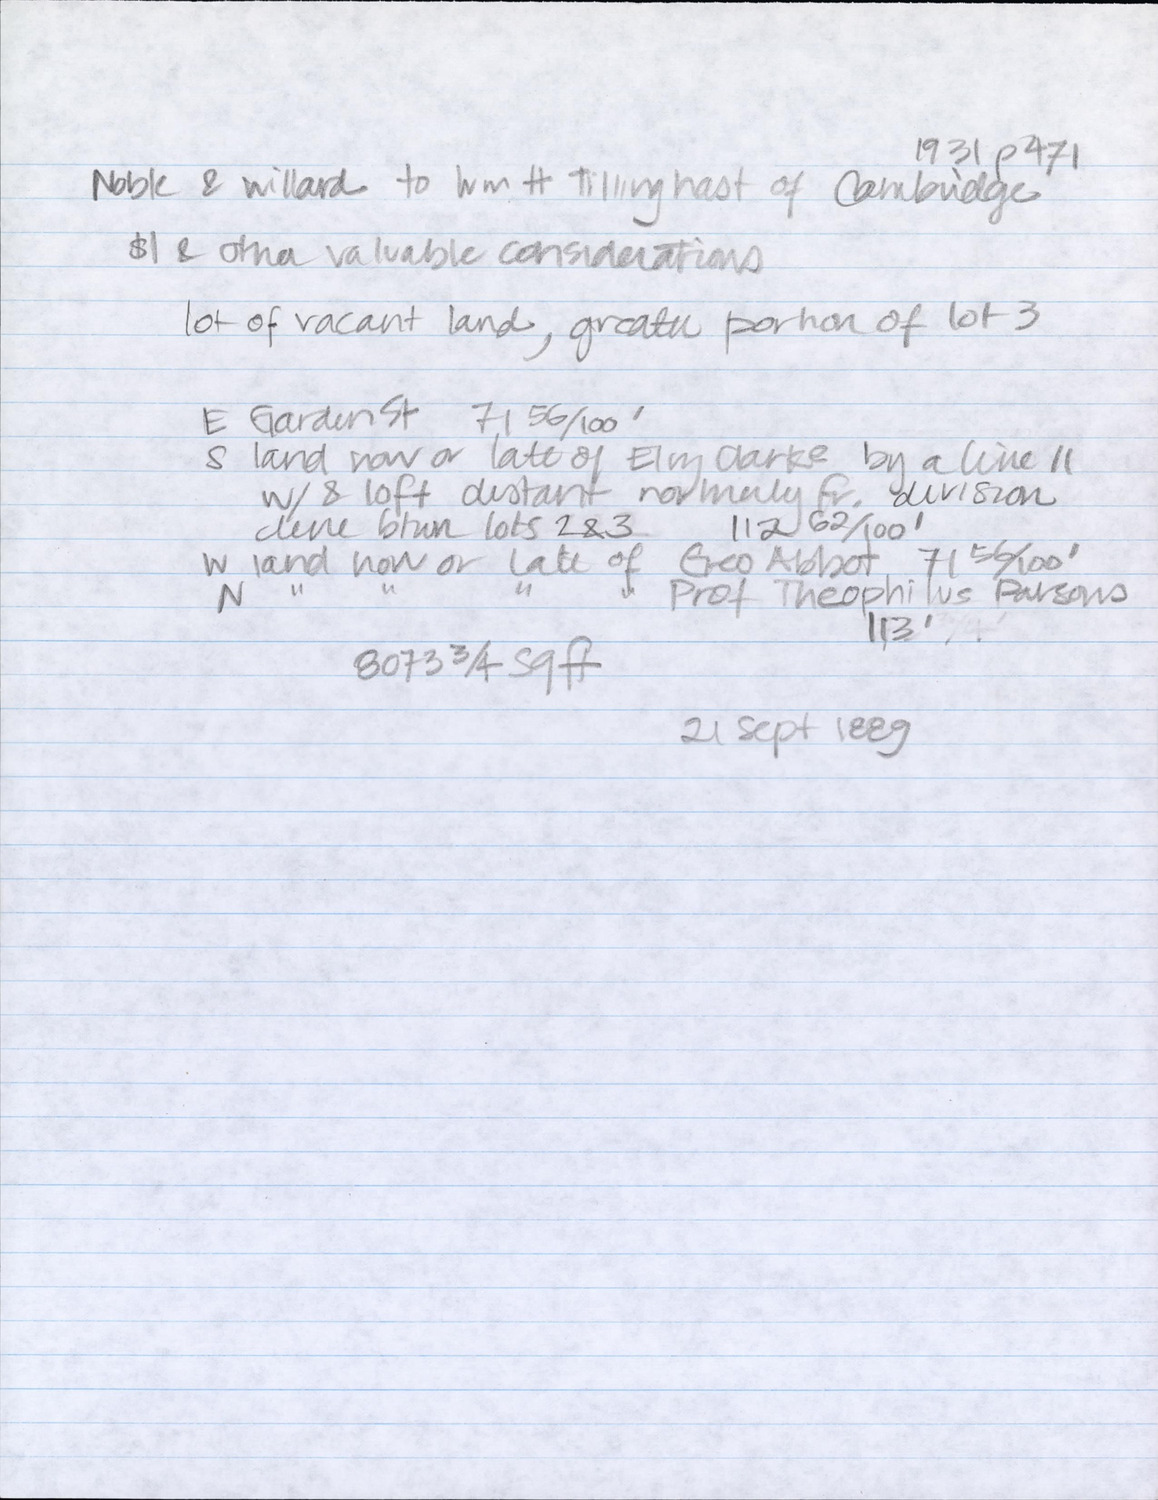 1931 p 471
Noble & Willard to Wm H Tillinghast of Cambridge
$1 & other valuable considerations
lot of vacant land, greater portion of lot 3
E Garden St 71 56/100 '
S land now or late of Elm Clarke by a line ||
w/ & 10ft distant normally fr. division
line btwn lots 2 & 3 112 62/100 '
W land now or late of Geo Abbot 71 56/100 '
N " " " " Prof Theophilus Parsons
113 '
8073 3/4 sq ft
21 Sept 1889